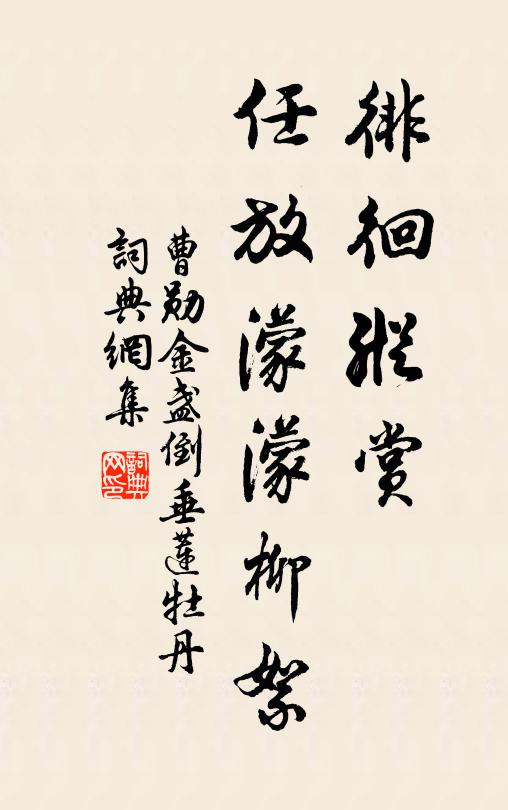 徘徊縱賞
任放濛濛柳絮
曹勋金盏倒垂蓮牡丹
詞典網集
詞典网印